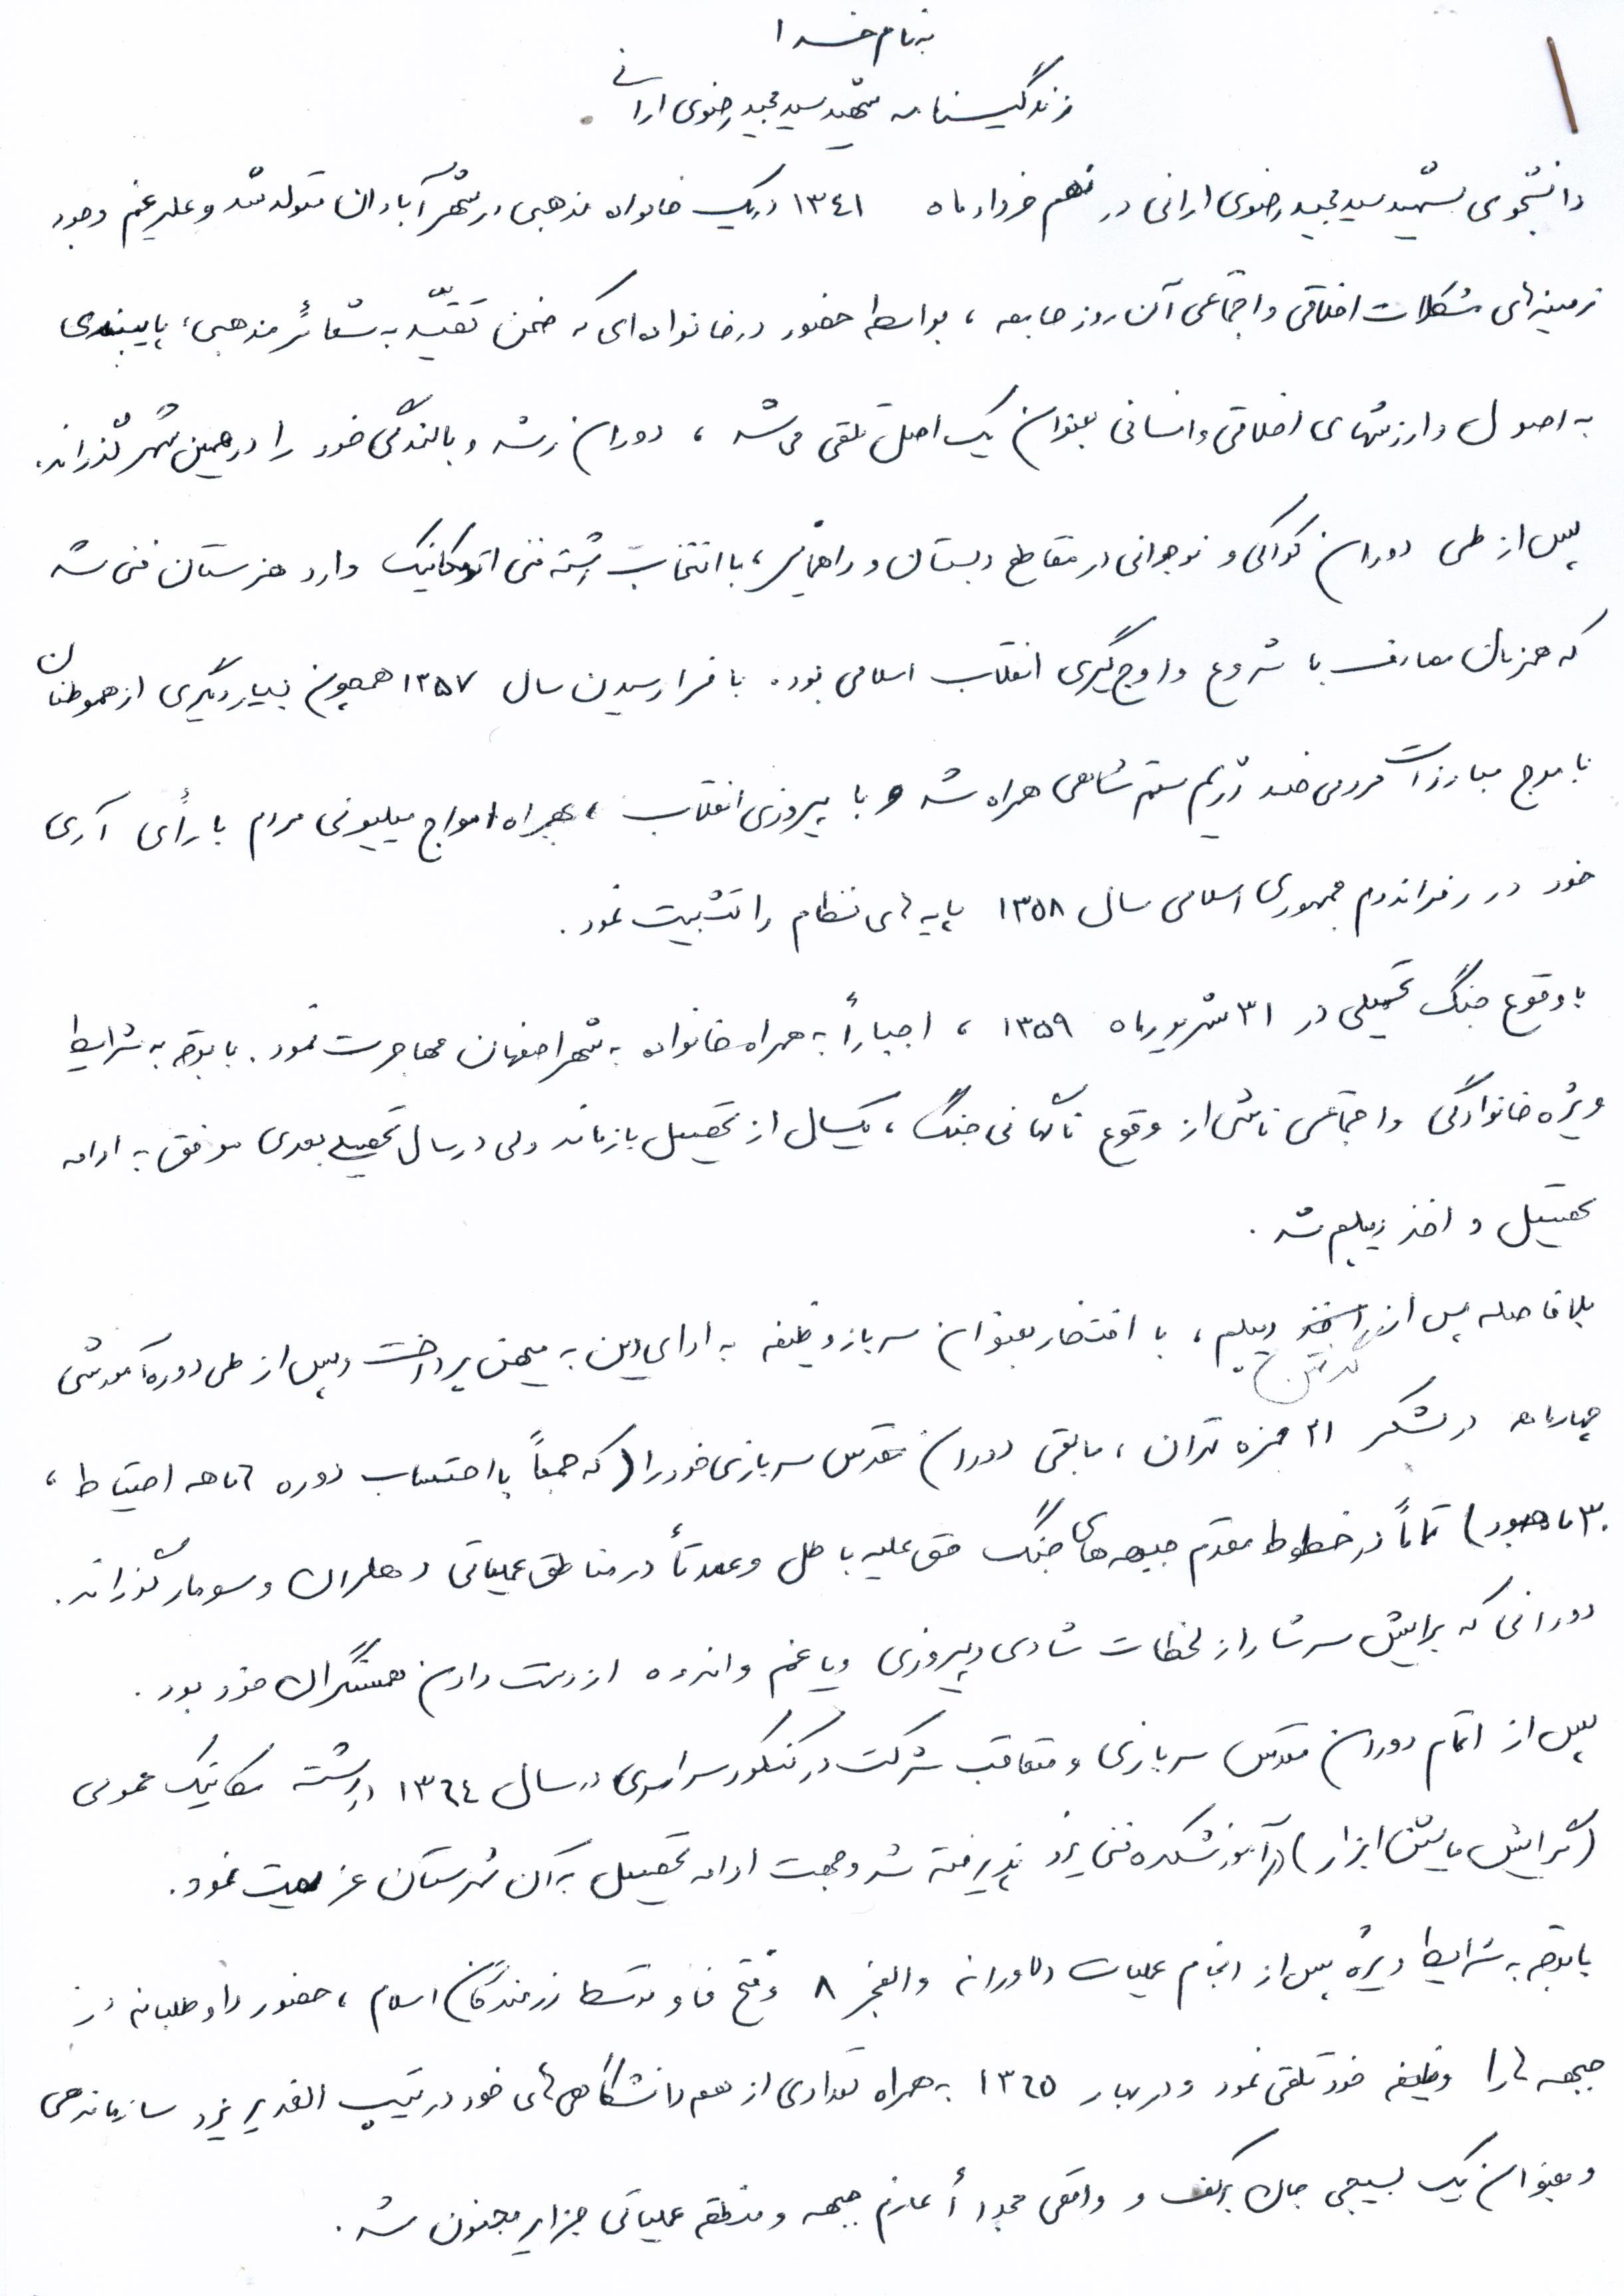 به نام خدا
زندگینامه شهید سید مجید رضوی ارانی
دانشجوی شهید سید مجید رضوی ارانی در نهم خرداد ماه ۱۳۴۱ در یک خانواده مذهبی در شهر آبادان متولد شد و علیرغم وجود
زمینه‌های مشکلات اخلاقی و اجتماعی آن روز جامعه ، بواسطه حضور در خانواده‌ای که ضمن تقیّد به شعائر مذهبی ، پایبندی
به اصول و ارزشهای اخلاقی و انسانی بعنوان یک اصل تلقی می‌شد ، دوران رشد و بالندگی خود را در همین شهر گذراند.
پس از طی دوران کودکی و نوجوانی در مقاطع دبستان و راهنمایی ، با انتخاب رشته فنی اتومکانیک وارد هنرستان فنی شد
که همزمان مصادف با شروع و اوج‌گیری انقلاب اسلامی بود. با فرا رسیدن سال ۱۳۵۷ همچون بسیار دیگری از هموطنان
با موج مبارزات مردمی ضد رژیم ستم شاهی همراه شد و با پیروزی انقلاب ، بهمراه امواج میلیونی مردم با رأی آری
خود در رفراندوم جمهوری اسلامی سال ۱۳۵۸ پایه‌های نظام را تثبیت نمود .
با وقوع جنگ تحمیلی در ۳۱ شهریورماه ۱۳۵۹ ، اجباراً به همراه خانواده به شهر اصفهان مهاجرت نمود . با توجه به شرایط
ویژه خانوادگی و اجتماعی ناشی از وقوع ناگهانی جنگ ، یکسال از تحصیل بازماند ولی در سال تحصیلی بعدی موفق به ادامه
تحصیل و اخذ دیپلم شد .
بلافاصله پس از گرفتن دیپلم ، با افتخار بعنوان سرباز وظیفه به ادای دین به میهن پرداخت و پس از طی دوره آموزشی
چهارماهه در لشکر ۲۱ حمزه تهران ، مابقی دوران مقدس سربازی خود را ( که جمعاً با احتساب دوره ۶ ماهه احتیاط ،
۳۰ ماه بود ) تماماً در خطوط مقدم جبهه‌های جنگ حق علیه باطل و عمدتاً در مناطق عملیاتی دهلران و سومار گذراند .
دورانی که برایش سرشار از لحظات شادی و پیروزی و یا غم و اندوه از دست دادن همسنگران خود بود .
پس از اتمام دوران مقدس سربازی و متعاقب شرکت در کنکور سراسری در سال ۱۳۶۴ در رشته مکانیک عمومی
( گرایش ماشین ابزار ) در آموزشکده فنی یزد پذیرفته شد و جهت ادامه تحصیل به آن شهرستان عزیمت نمود.
با توجه به شرایط ویژه پس از انجام عملیات دلاورانه والفجر ۸ و فتح فاو توسط رزمندگان اسلام ، حضور داوطلبانه در
جبهه‌ها را وظیفه خود تلقی نمود و در بهار ۱۳۶۵ به همراه تعدادی از هم دانشگاهی‌های خود در تیپ الغدیر یزد سازماندهی
و بعنوان یک بسیجی جان برکف و واقعی مجدداً عازم جبهه و منطقه عملیاتی جزایر مجنون شد .